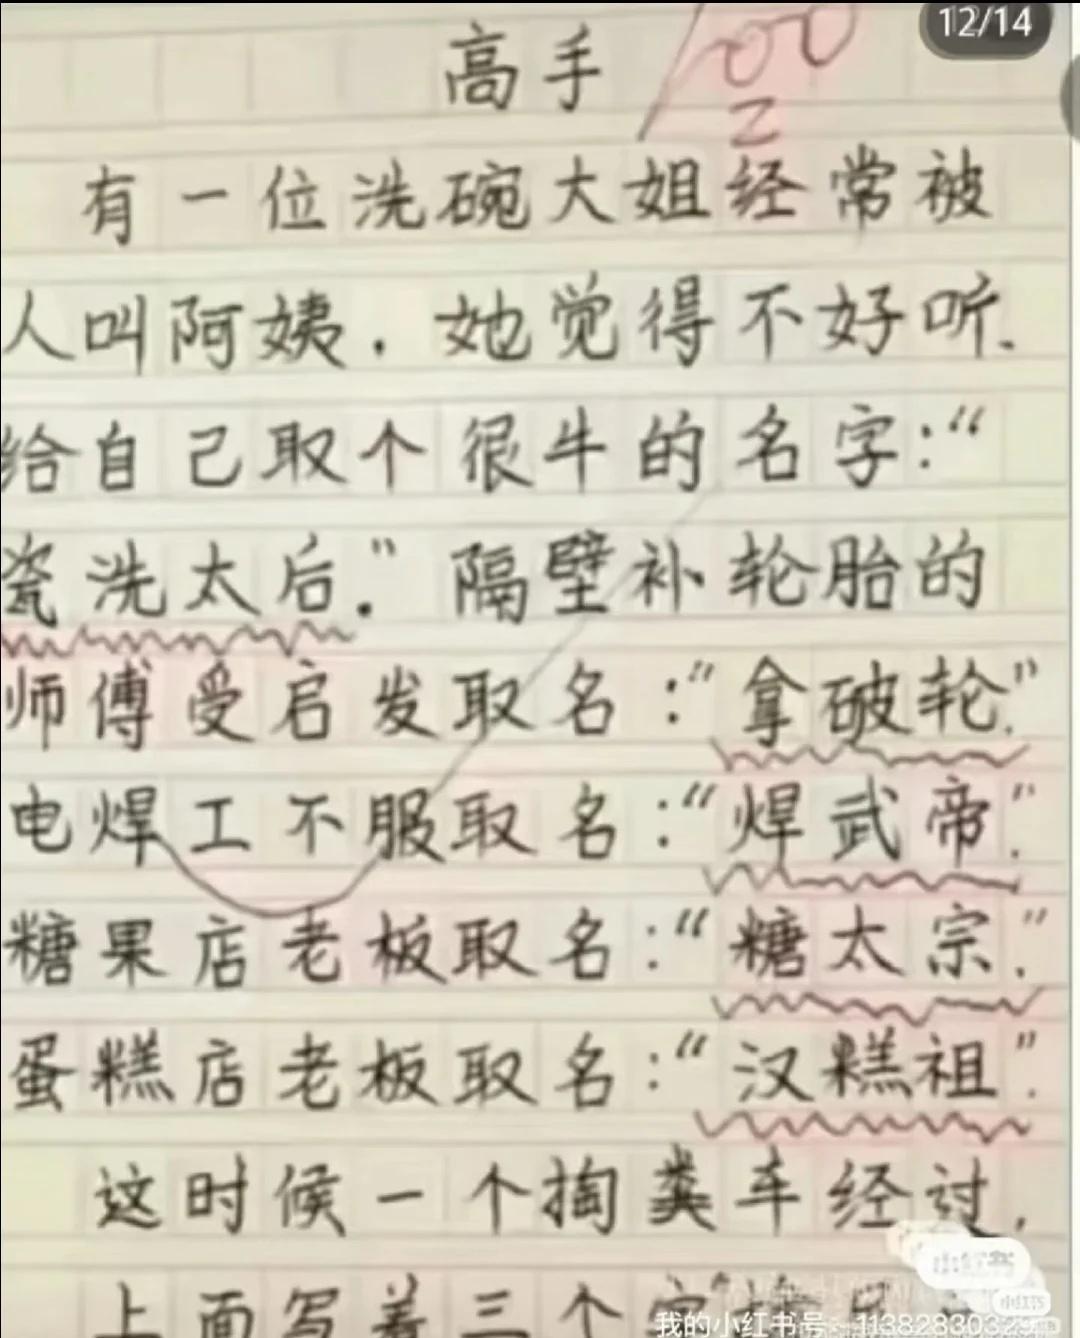 12/14
高手
100
有一位洗碗大姐经常被
人叫阿姨.她觉得不好听.
给自己取个很牛的名字:“
瓷洗太后.”隔壁补轮胎的
师傅受启发取名:“拿破轮”.
电焊工不服取名:“焊武帝”.
糖果店老板取名:“糖太宗.”
蛋糕店老板取名:“汉糕祖”.
这时候一个掏粪车经过.
上面写着三个字
小红书
小红书
我的小红书号: